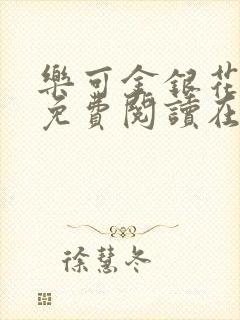 樂可金銀花
免費閱讀在
徐慧冬